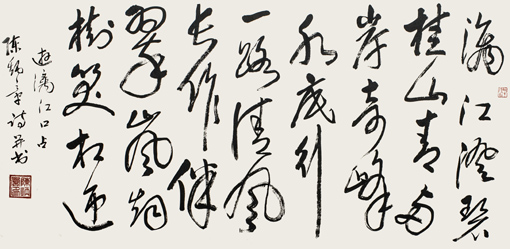 漓江澄碧
桂山青两
岸奇峰
水底行
一路清风
长作伴
翠岚烟
树笑相迎
游漓江口占
陈章诗并书